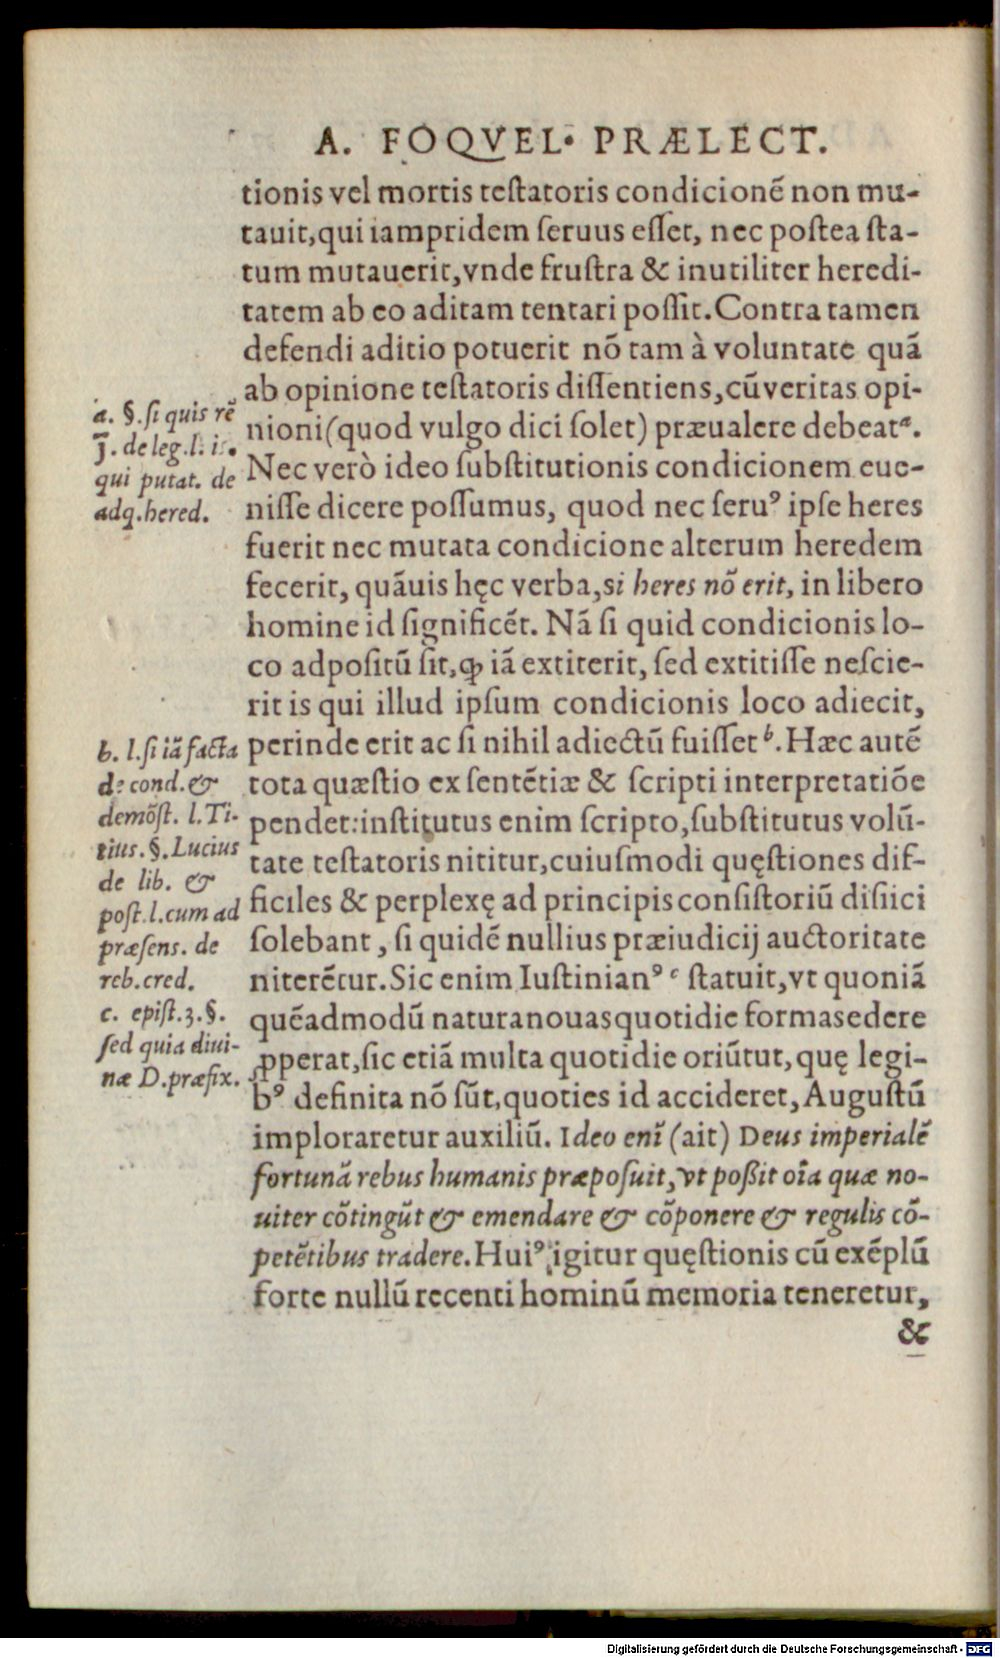 A. FOQVEL. PRÆLECT.
tionis vel mortis teſtatoris condicionē non mu-
tauit,qui iampridem ſeruus eſſet, nec poſtea ſta-
tum mutauerit,vnde fruſtra & inutiliter heredi-
tatem ab eo aditam tentari poſſit.Contra tamen
defendi aditio potuerit nō tam à voluntate quā
ab opinione teſtatoris diſſentiens,cū veritas opi-
nioni(quod vulgo dici ſolet) præualere debeatᵃ.
Nec verò ideo ſubſtitutionis condicionem eue-
niſſe dicere poſſumus, quod nec ſeruꝰ ipſe heres
fuerit nec mutata condicione alterum heredem
fecerit, quāuis hęc verba,si heres nō erit, in libero
homine id ſignificēt. Nā ſi quid condicionis lo-
co adpoſitū ſit,ꝙ iā extiterit, ſed extitiſſe neſcie-
rit is qui illud ipſum condicionis loco adiecit,
perinde erit ac ſi nihil adiectū fuiſſet ᵇ.Hæc autē
tota quæſtio ex ſentētiæ & ſcripti interpretatiōe
pendet:inſtitutus enim ſcripto,ſubſtitutus volū-
tate teſtatoris nititur,cuiuſmodi quęſtiones dif-
ficiles & perplexę ad principis conſiſtoriū diſiici
ſolebant, ſi quidē nullius præiudicij auctoritate
niterētur.Sic enim Iuſtinianꝰ ᶜ ſtatuit,vt quoniā
quēadmodū natura nouas quotidie formas edere
ꝓperat,ſic etiā multa quotidie oriūtut,quę legi-
bꝰ definita nō ſūt,quoties id accideret,Auguſtū
imploraretur auxiliū. Ideo enī (ait) Deus imperialē
fortunā rebus humanis præpoſuit, vt poßit oīa quæ no-
uiter cōtingūt & emendare & cōponere & regulis cō-
petētibus tradere.Huiꝰ igitur quęſtionis cū exēplū
forte nullū recenti hominū memoria teneretur,
&
a. §.ſi quis rē
j. de leg.l. is.
qui putat. de
adq.hered.
b. l.ſi iā facta
de cond. &
demōſt. l. Ti-
tius.§.Lucius
de lib. &
poſt.l.cum ad
præſens. de
reb.cred.
c. epiſt.3.§.
ſed quia diui-
næ D.præfix.
Digitalisierung gefördert durch die Deutsche Forschungsgemeinschaft - DFG